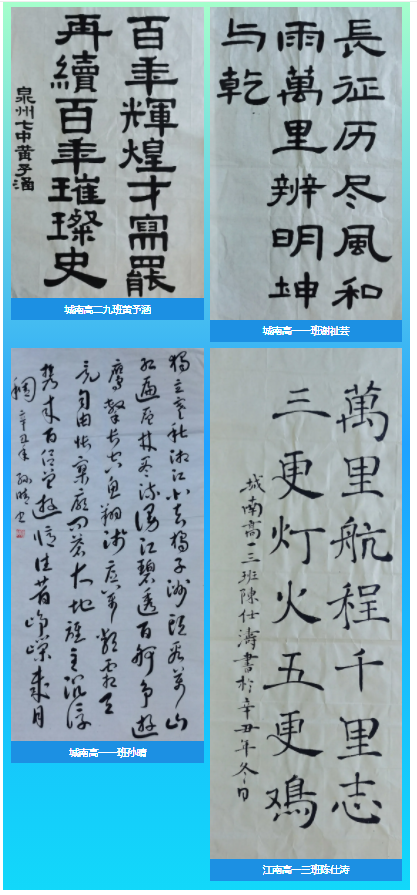 百年輝煌才寫罷
再續百年璀璨史
泉州七中黄予涵
城南高二九班黄予涵
長征历尽風和
雨萬里辨明坤
与乾
城南高一一班谢祉芸
獨立寒秋湘江北去橘子洲頭看萬山
红遍层林尽染漫江碧透百舸争游
鹰擊长空鱼翔浅底万类霜天
竞自由怅寥廓问苍大地谁主沉浮
携来百侣曾游忆往昔峥嵘岁月
稠 辛丑年 孙晴书
城南高一一班孙晴
萬里航程千里志
三更灯火五更鳮
城南高一三班陳仕濤書於辛丑年冬日
江南高一三班陈仕涛